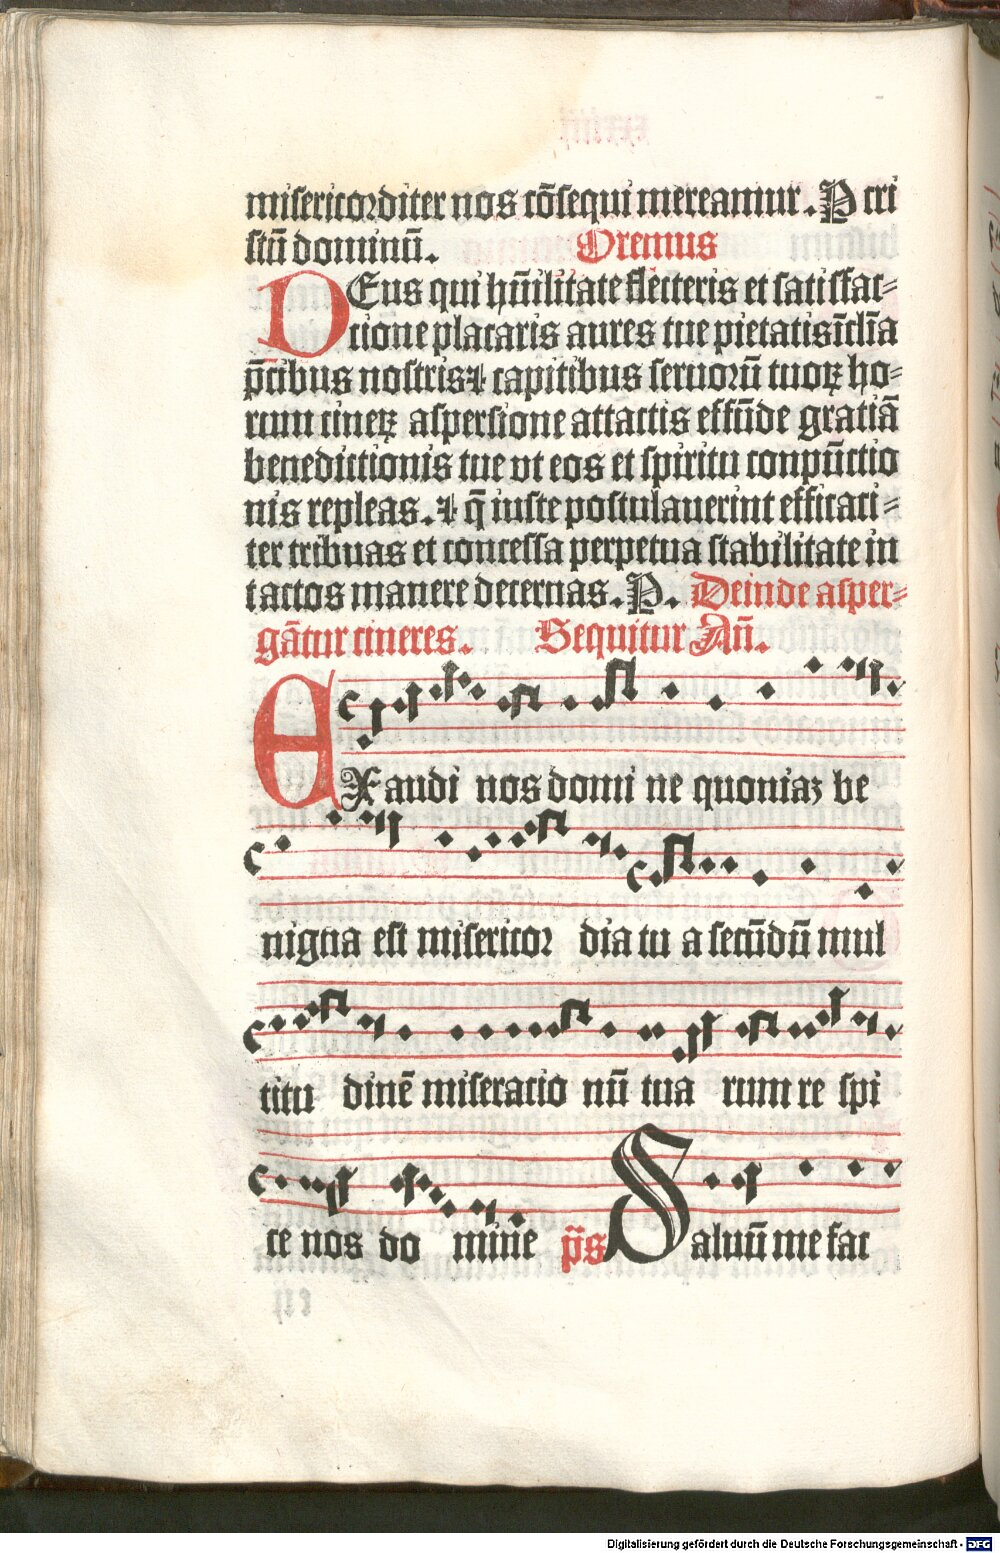 misericorditer nos cōsequi mereamur. P cri
stū dominū. Oremus
DEus qui hūilitate flecteris et satisfac-
tione placaris aures tue pietatis īclīa
p̄cibus nostris ⁊ capitibus seruorū tuoꝝ ho-
rum cineꝝ aspersione attactis effūde gratiā
benedictionis tue vt eos et spiritu conpūctio
nis repleas. ⁊ q̄ iuste postulauerint efficaci-
ter tribuas et concessa perpetua stabilitate in
tactos manere decernas. P. Deinde asper-
gātur cineres. Sequitur Añ.
EXaudi nos domi ne quoniaz be
nigna est misericor dia tu a secūdū mul
titu dinē miseratio nū tua rum re spi
ce nos do mine p̄s Saluū me fac
Digitalisierung gefördert durch die Deutsche Forschungsgemeinschaft - DFG